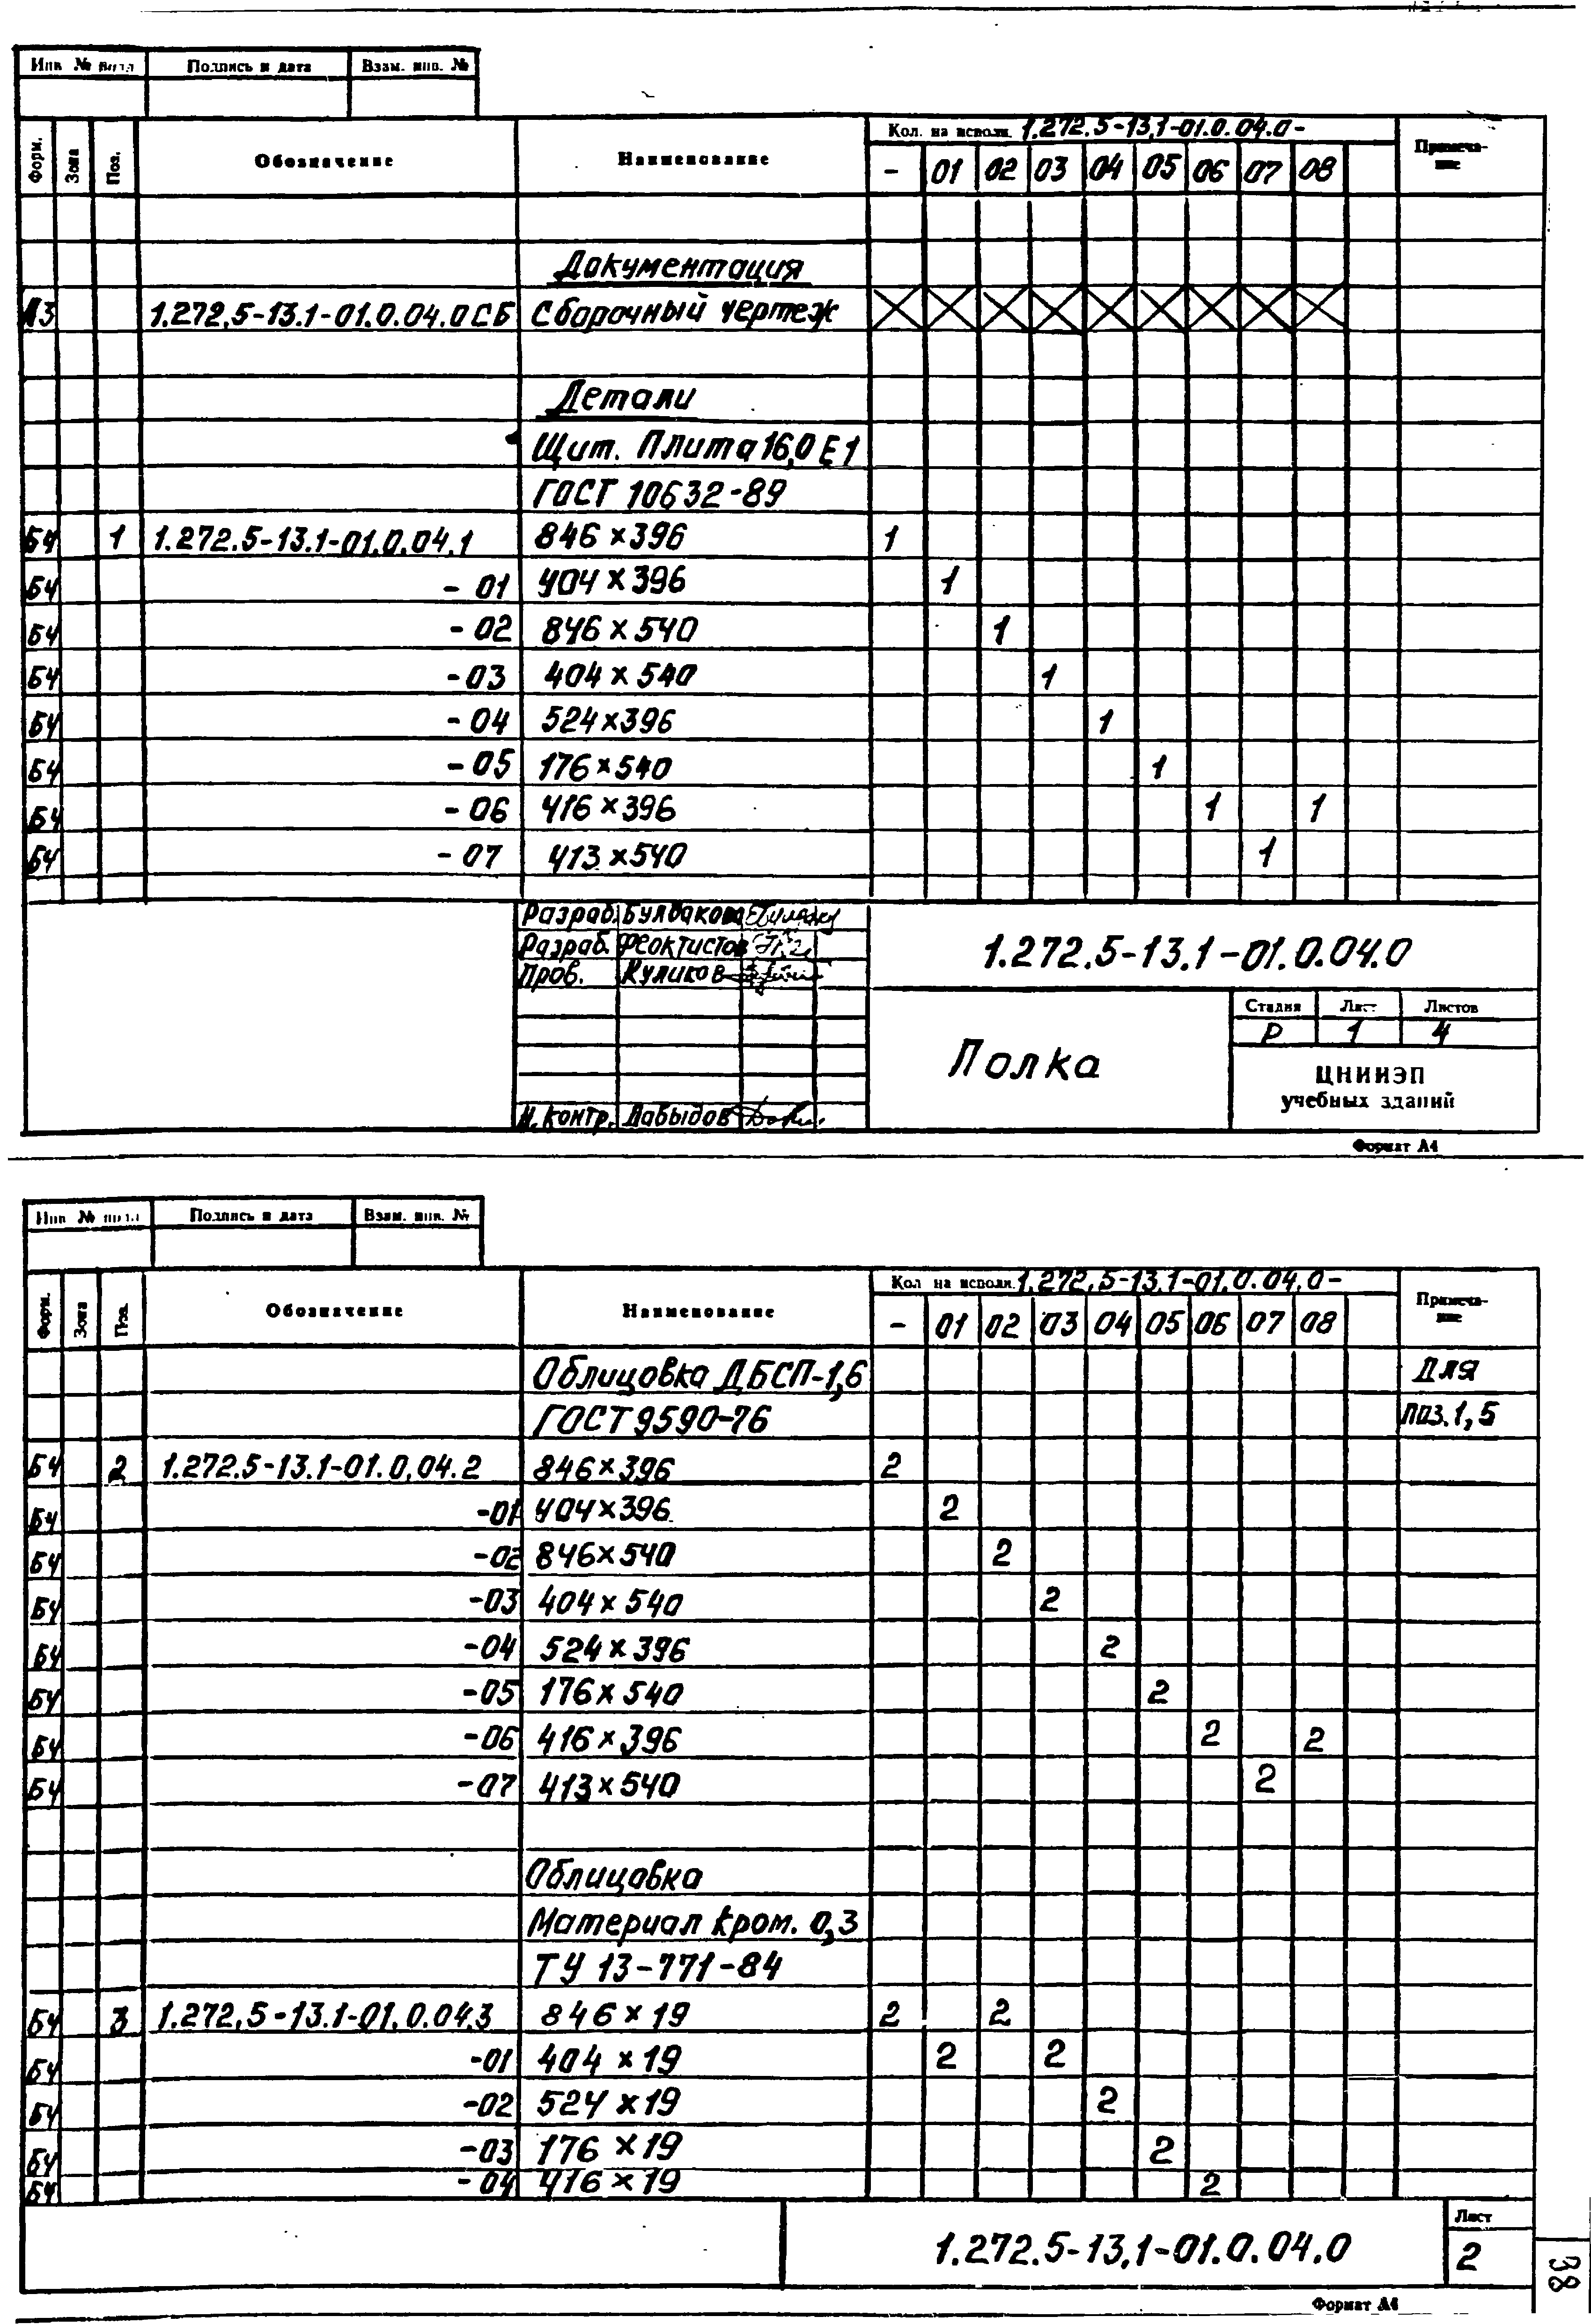 Инв. № подл. Подпись и дата Взам. инв. №
Форм. Зона Поз. Обозначение Наименование Кол. на исполн. 1.272.5-13.1-01.0.04.0- Примеча-
ние
- 01 02 03 04 05 06 07 08
Документация
А3 1.272.5-13.1-01.0.04.0СБ Сборочный чертеж
Детали
Щит. Плита 16,0 Е1
ГОСТ 10632-89
БЧ 1 1.272.5-13.1-01.0.04.1 846×396 1
БЧ -01 404×396 1
БЧ -02 846×540 1
БЧ -03 404×540 1
БЧ -04 524×396 1
БЧ -05 176×540 1
БЧ -06 416×396 1 1
БЧ -07 413×540 1
Разраб. Булдакова
Разраб. Феоктистов
Пров. Куликов
Н. контр. Давыдов
1.272.5-13.1-01.0.04.0
Полка
Стадия Лист Листов
Р 1 4
ЦНИИЭП
учебных зданий
Формат А4
Инв. № подл. Подпись и дата Взам. инв. №
Форм. Зона Поз. Обозначение Наименование Кол. на исполн. 1.272.5-13.1-01.0.04.0- Примеча-
ние
- 01 02 03 04 05 06 07 08
Облицовка ДБСП-1,6 Для
ГОСТ 9590-76 поз. 1, 5
БЧ 2 1.272.5-13.1-01.0.04.2 846×396 2
БЧ -01 404×396 2
БЧ -02 846×540 2
БЧ -03 404×540 2
БЧ -04 524×396 2
БЧ -05 176×540 2
БЧ -06 416×396 2 2
БЧ -07 413×540 2
Облицовка
Материал кром. 0,3
ТУ 13-771-84
БЧ 3 1.272.5-13.1-01.0.04.3 846×19 2 2
БЧ -01 404×19 2 2
БЧ -02 524×19 2
БЧ -03 176×19 2
БЧ -04 416×19 2
1.272.5-13.1-01.0.04.0
Лист
2
38
Формат А4